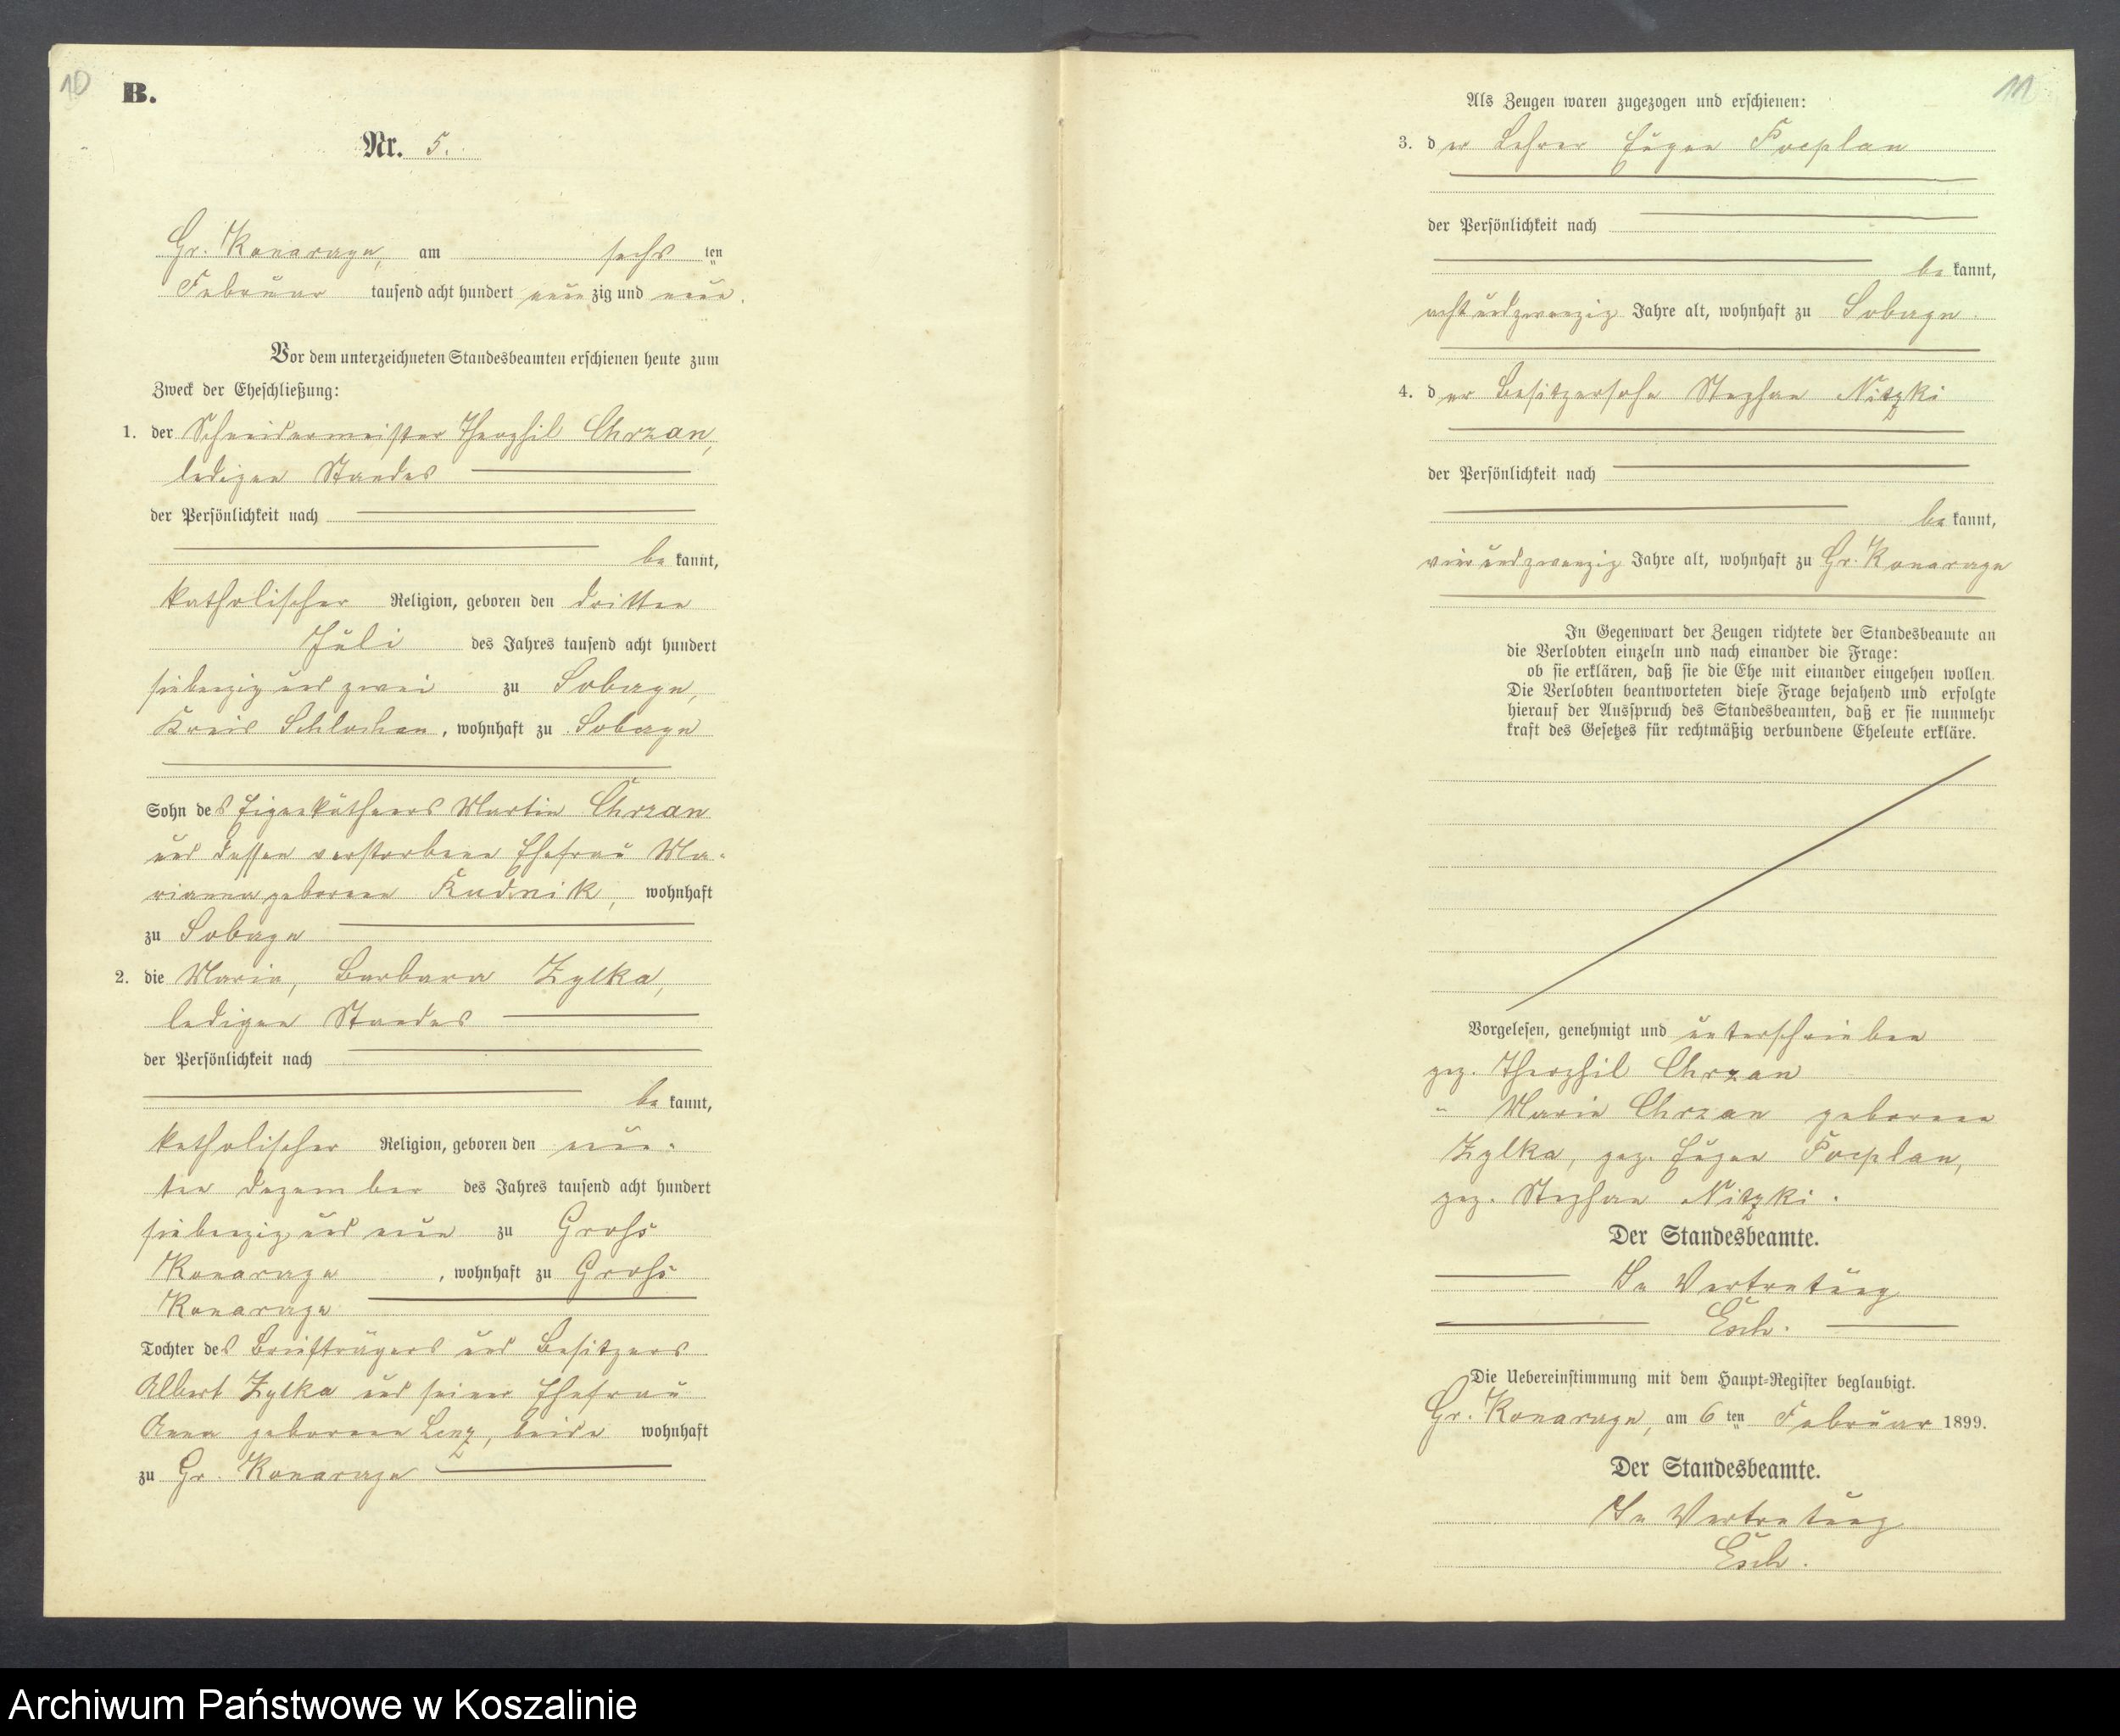 10
B.
Nr. 5.
Gr. Konarzyn, am sechs ten
Februar tausend acht hundert neun zig und neun.
Vor dem unterzeichneten Standesbeamten erschienen heute zum
Zweck der Eheschließung:
1. der Schneidermeister Theophil Chrzan,
ledigen Standes
der Persönlichkeit nach
be kannt,
katholischer Religion, geboren den dritten
Juli des Jahres tausend acht hundert
siebenzig und zwei zu Sobczyn,
Kreis Schlochau, wohnhaft zu Sobczyn
Sohn des Eigenkäthners Martin Chrzan
und dessen verstorbene Ehefrau Ma-
rianna geborene Rudnik, wohnhaft
zu Sobczyn
2. die Maria, Barbara Zylka,
ledigen Standes
der Persönlichkeit nach
be kannt,
katholischer Religion, geboren den neun-
ten Dezember des Jahres tausend acht hundert
siebenzig und neun zu Groß
Konarzyn, wohnhaft zu Groß
Konarzyn
Tochter des Briefträgers und Besitzers
Albert Zylka und seiner Ehefrau
Anna geborene Lenz, beide wohnhaft
zu Gr. Konarzyn
11
Als Zeugen waren zugezogen und erschienen:
3. der Lehrer Eugen
der Persönlichkeit nach
be kannt,
acht und zwanzig Jahre alt, wohnhaft zu Sobczyn.
4. der Besitzersohn Stephan Nitzki
der Persönlichkeit nach
be kannt,
vier und zwanzig Jahre alt, wohnhaft zu Gr. Konarzyn
In Gegenwart der Zeugen richtete der Standesbeamte an
die Verlobten einzeln und nach einander die Frage:
ob sie erklären, daß sie die Ehe mit einander eingehen wollen.
Die Verlobten beantworteten diese Frage bejahend und erfolgte
hierauf der Ausspruch des Standesbeamten, daß er sie nunmehr
kraft des Gesetzes für rechtmäßig verbundene Eheleute erkläre.
Vorgelesen, genehmigt und unterschrieben
gez. Theophil Chrzan
" Maria Chrzan geborene
Zylka, gez. Eugen
gez. Stephan Nitzki.
Der Standesbeamte.
In Vertretung
Esch.
Die Uebereinstimmung mit dem Haupt-Register beglaubigt.
Gr. Konarzyn, am 6 ten Februar 1899.
Der Standesbeamte.
In Vertretung
Esch.
Archiwum Państwowe w Koszalinie